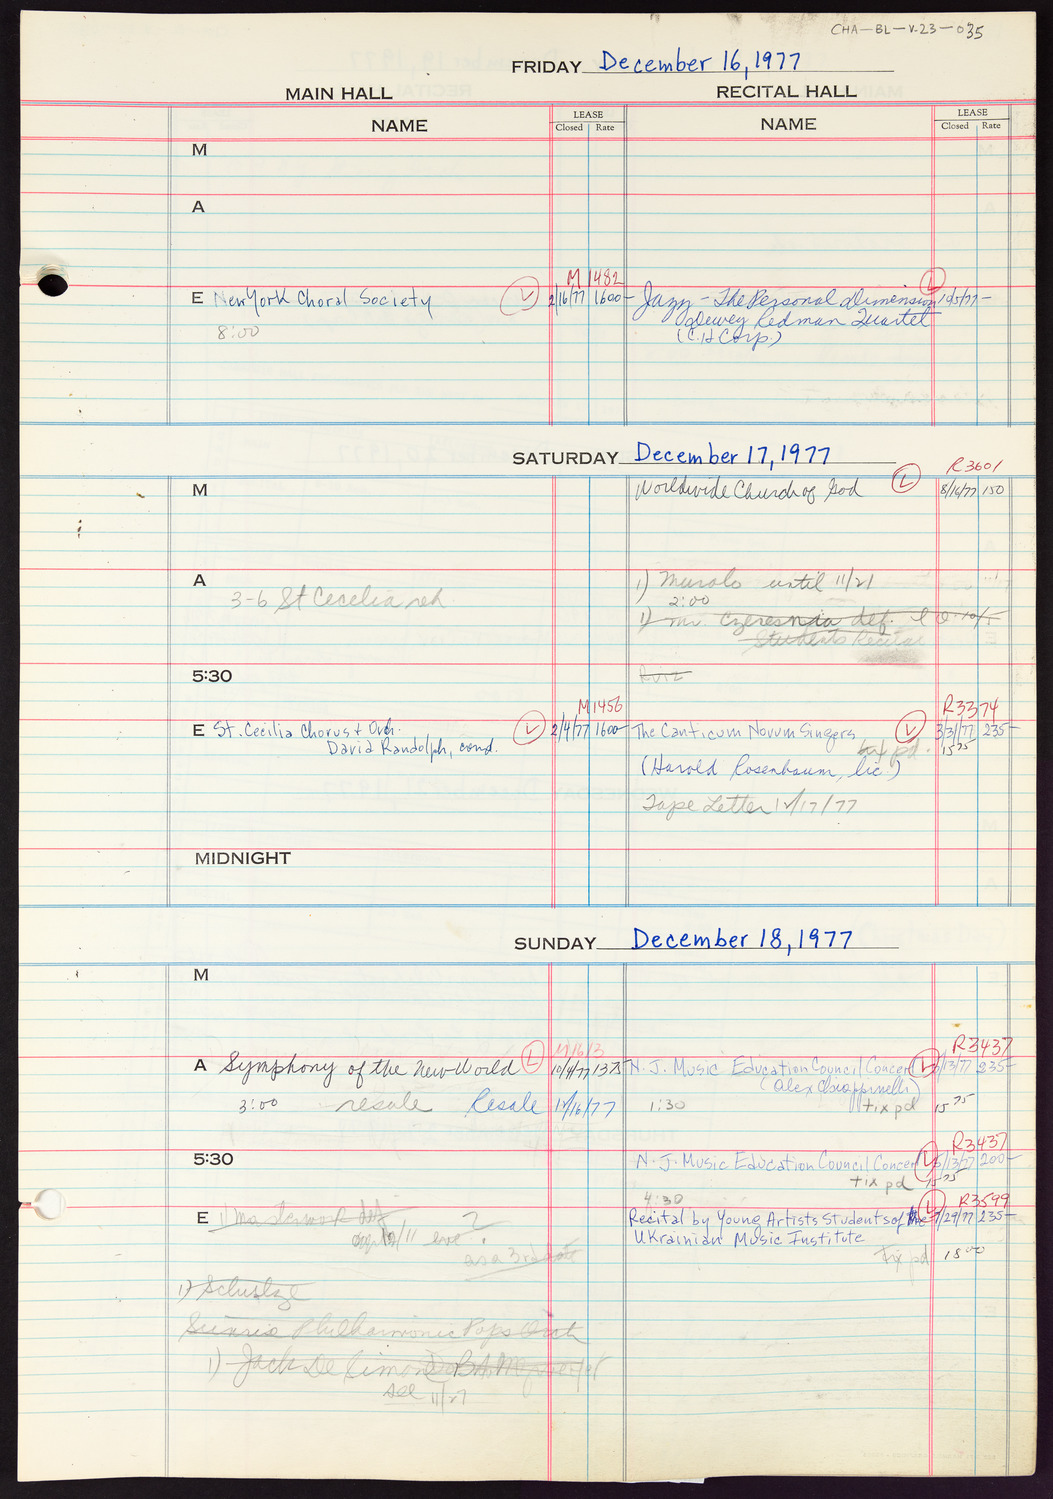 CHA-BL-V.23-035
FRIDAY December 16, 1977
MAIN HALL
RECITAL HALL
NAME
LEASE
Closed Rate
NAME
LEASE
Closed Rate
M
A
M 1482
E New York Choral Society L 2/16/77 1600-
8:00
L
Jazz - The Personal Dimension 1/25/77 -
Dewey Redman Quartet
(C.H Corp.)
SATURDAY December 17, 1977
R3601
M
Worldwide Church of God L 8/16/77 150
A
3-6 St Cecelia reh
1) Muralo until 11/21
2:00
1) Mr. Czeresnda def.
Students Recital
5:30
Ruiz
M1456
E St. Cecilia Chorus + Orch. L 2/4/77 1600-
David Randolph, cond.
R3374
The Canticum Novum Singers, L 3/31/77 235-
tax pd. 15 75
(Harold Rosenbaum, lic.)
Tape Letter 12/17/77
MIDNIGHT
SUNDAY December 18, 1977
M
M1613
A Symphony of the New World L 10/4/77 1375
3:00 resale Resale 12/16/77
R3437
N.J. Music Education Council Concert L 5/13/77 235-
(Alex Chiappinelli)
1:30 tix pd 15 75
R3437
5:30
N.J. Music Education Council Concert L 5/13/77 200-
tix pd 15 75
4:30
R3599
E 1) Masterwork def
?
as a 3rd date
Recital by Young Artists Students of the L 7/29/77 235-
Ukrainian Music Institute
tix pd 18 00
1) Schultze
Philharmonic Pops Orch
1) Jack De Simon
see 11/27